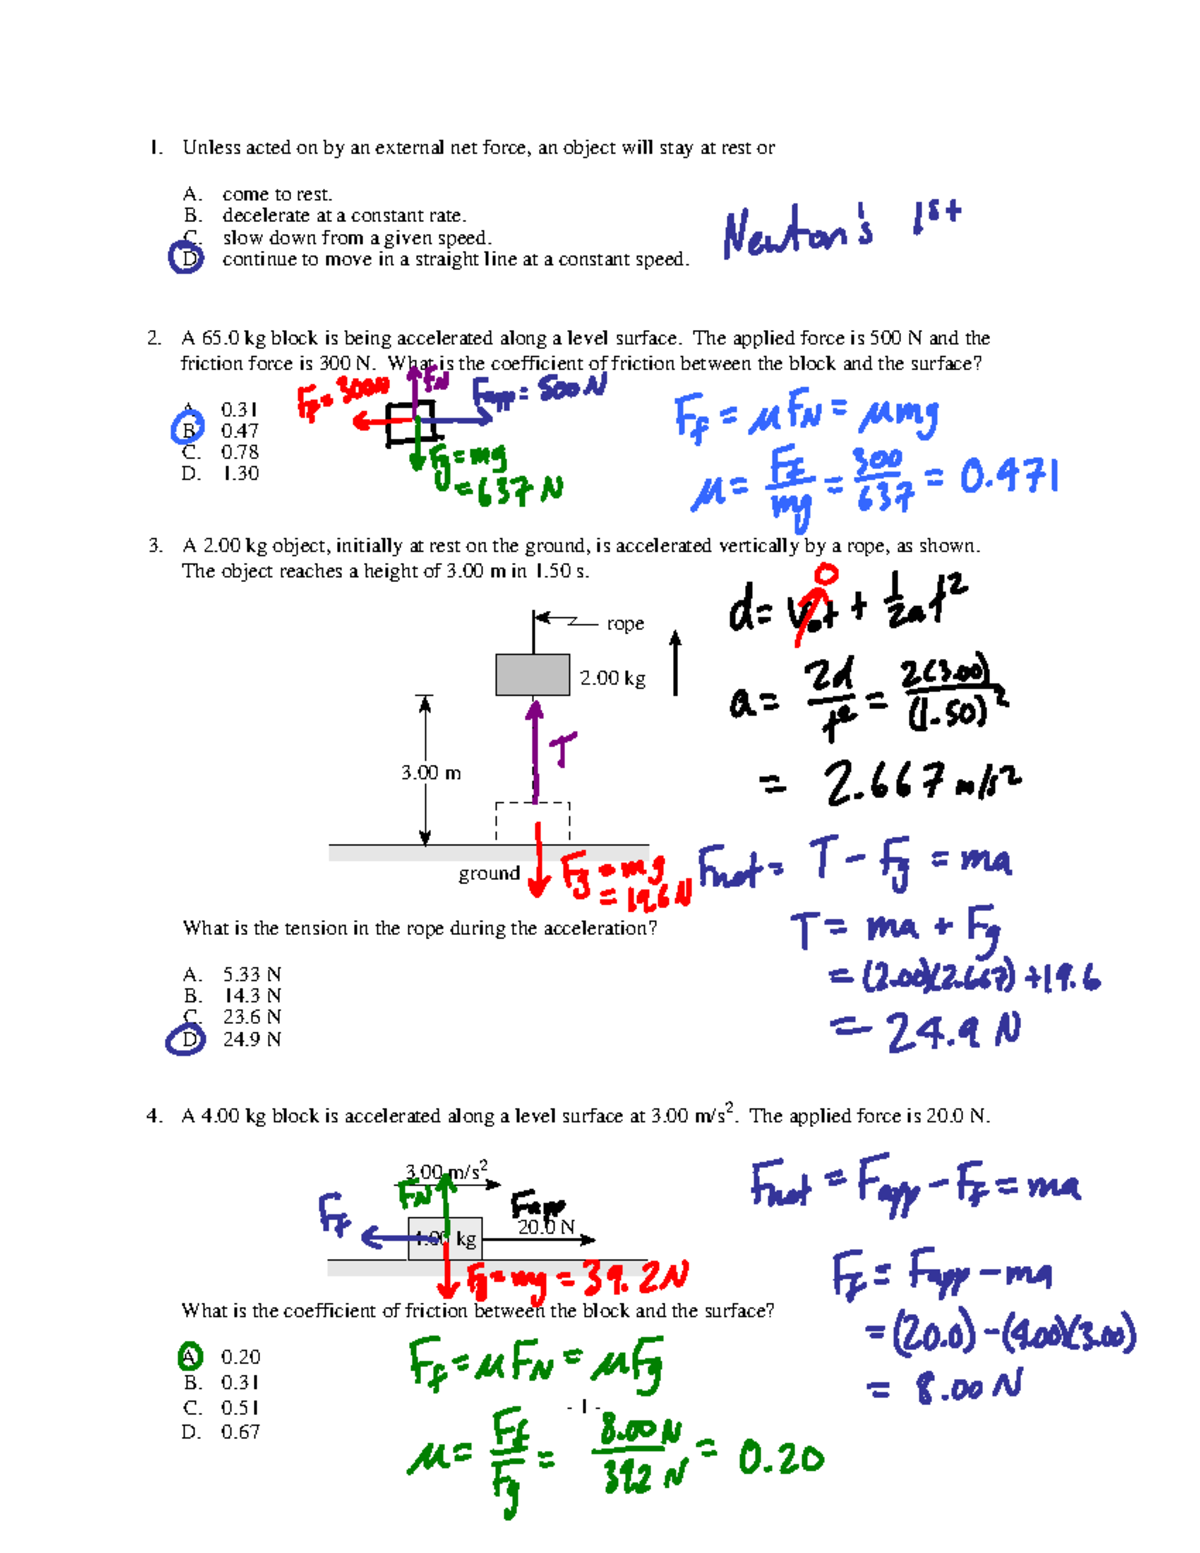 1. Unless acted on by an external net force, an object will stay at rest or
A. come to rest.
B. decelerate at a constant rate.
C. slow down from a given speed.
D. continue to move in a straight line at a constant speed.
Newton's 1st
2. A 65.0 kg block is being accelerated along a level surface. The applied force is 500 N and the
friction force is 300 N. What is the coefficient of friction between the block and the surface?
A. 0.31
B. 0.47
C. 0.78
D. 1.30
Ff = 300N
FN
Fapp = 500N
Fg = mg
= 637 N
Ff = μFN = μmg
μ = Ff/mg = 300/637 = 0.471
3. A 2.00 kg object, initially at rest on the ground, is accelerated vertically by a rope, as shown.
The object reaches a height of 3.00 m in 1.50 s.
rope
2.00 kg
T
3.00 m
ground
Fg = mg
= 19.6 N
0
d = V₀t + 1/2at²
a = 2d/t² = 2(3.00)/(1.50)²
= 2.667 m/s²
Fnet = T - Fg = ma
T = ma + Fg
= (2.00)(2.667) + 19.6
= 24.9 N
What is the tension in the rope during the acceleration?
A. 5.33 N
B. 14.3 N
C. 23.6 N
D. 24.9 N
4. A 4.00 kg block is accelerated along a level surface at 3.00 m/s². The applied force is 20.0 N.
3.00 m/s²
FN
Ff
Fapp
20.0 N
4.00 kg
Fg = mg = 39.2N
Fnet = Fapp - Ff = ma
Ff = Fapp - ma
= (20.0) - (4.00)(3.00)
= 8.00 N
What is the coefficient of friction between the block and the surface?
A. 0.20
B. 0.31
C. 0.51
D. 0.67
Ff = μFN = μFg
μ = Ff/Fg = 8.00 N/39.2 N = 0.20
- 1 -